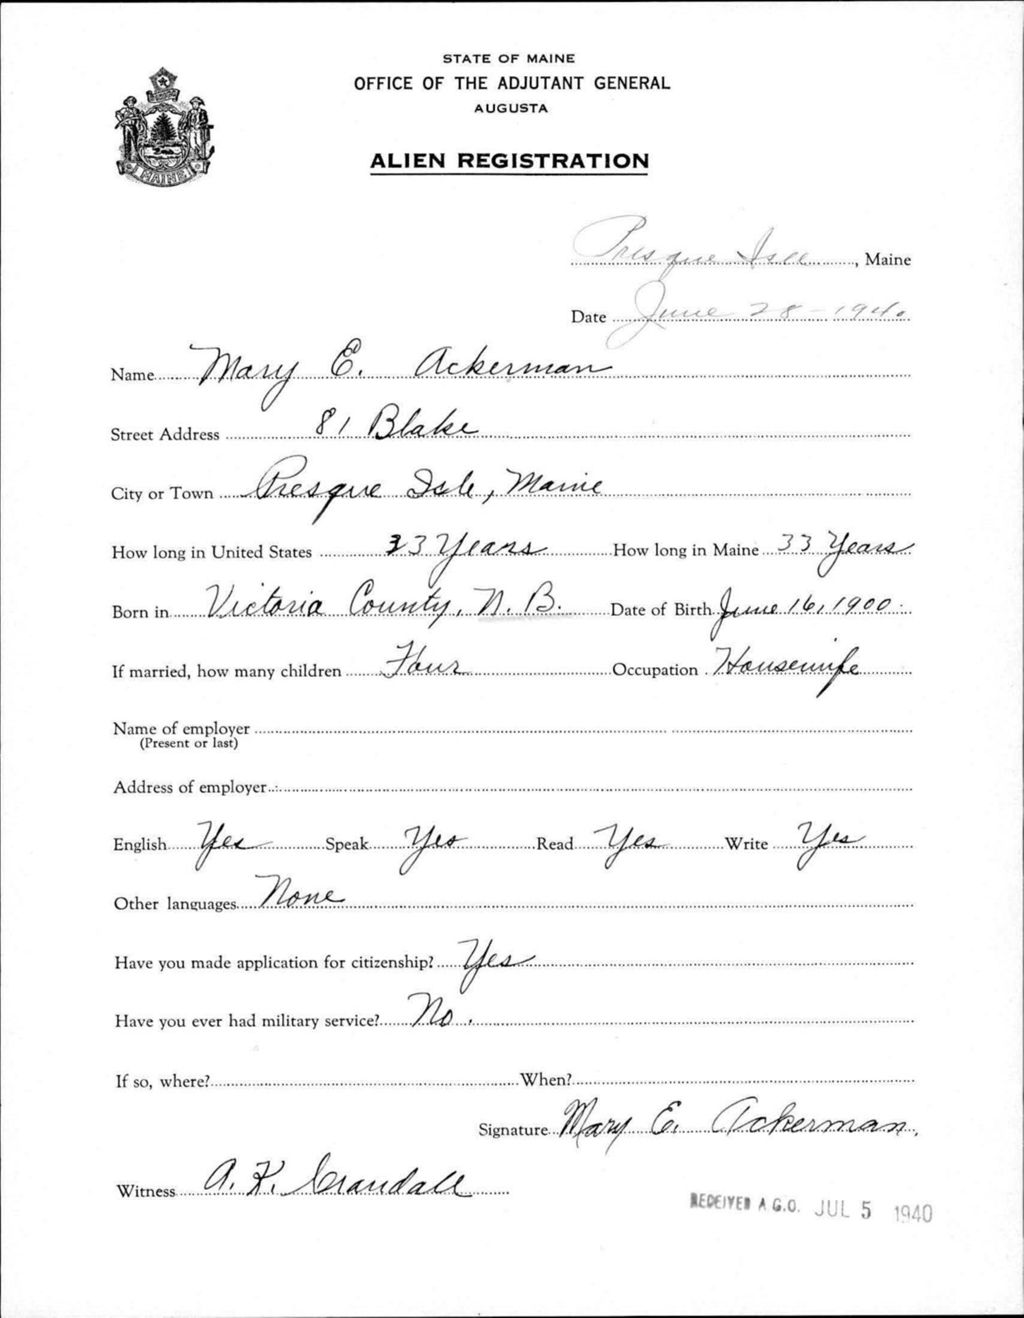 STATE OF MAINE
OFFICE OF THE ADJUTANT GENERAL
AUGUSTA
ALIEN REGISTRATION
MAINE
Presque Isle, Maine
Date June 28-1940
Name Mary E. Ackerman
Street Address 81 Blake
City or Town Presque Isle, Maine
How long in United States 33 Years How long in Maine 33 Years
Born in Victoria County, N.B. Date of Birth June 16, 1900
If married, how many children Four Occupation Housewife
Name of employer
(Present or last)
Address of employer
English Yes Speak Yes Read Yes Write Yes
Other languages None
Have you made application for citizenship? Yes
Have you ever had military service? No.
If so, where? When?
Signature Mary E. Ackerman.
Witness A. K. Crandall
RECEIVED A.G.O. JUL 5 1940